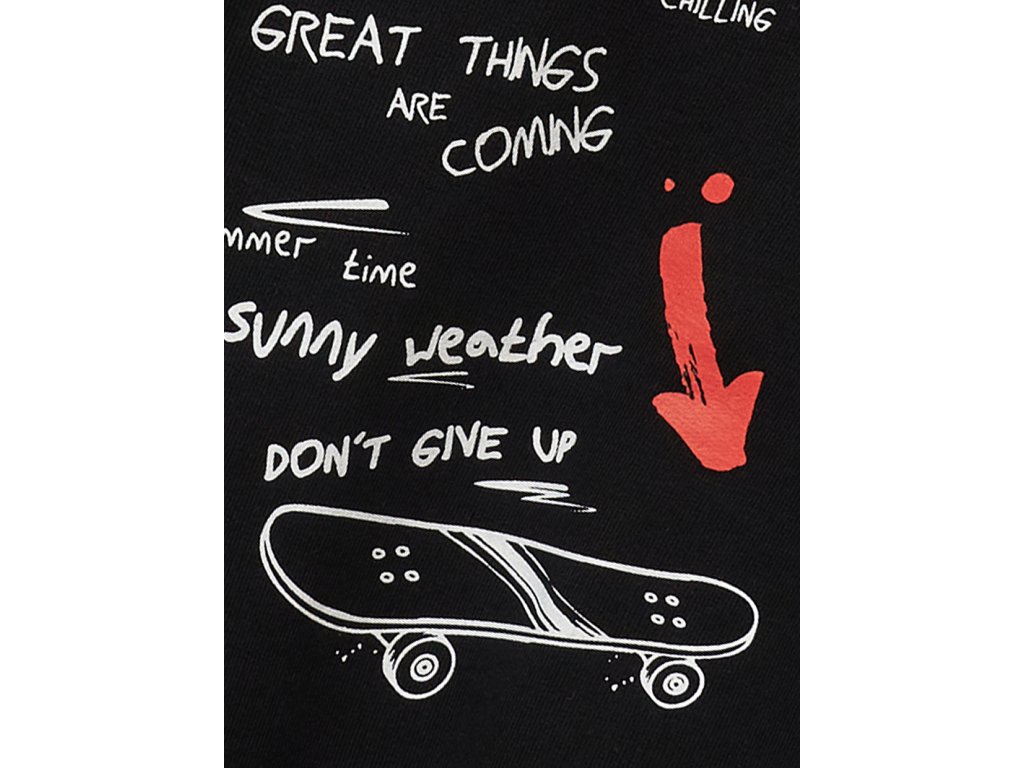 CHILLING
GREAT THINGS
ARE
COMING
mmer time
sunny weather
DON'T GIVE UP